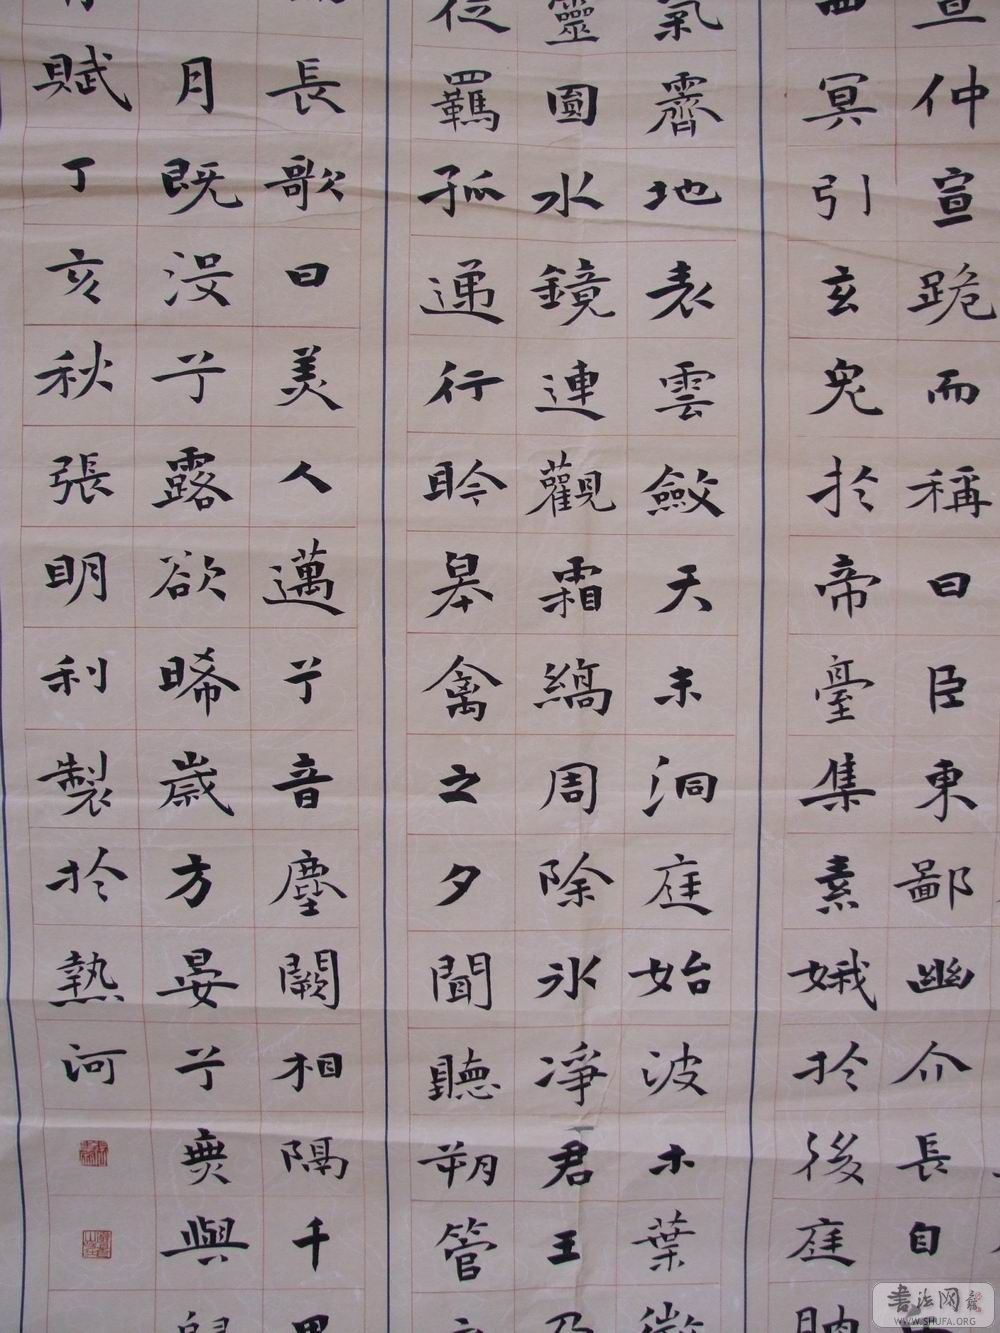 宣仲宣跪而稱曰臣東鄙幽介長自
西冥引玄兔於帝臺集素娥於後庭朒
氣霽地表雲斂天末洞庭始波木葉微
靈圓水鏡連觀霜縞周除氷凈君王乃
從羈孤遞行聆皋禽之夕聞聽朔管之
長歌曰美人邁兮音塵闕相隔千里
月既没兮露欲晞歲方晏兮無與歸
賦丁亥秋張明利製於熱河
书法网
WWW.SHUFA.ORG